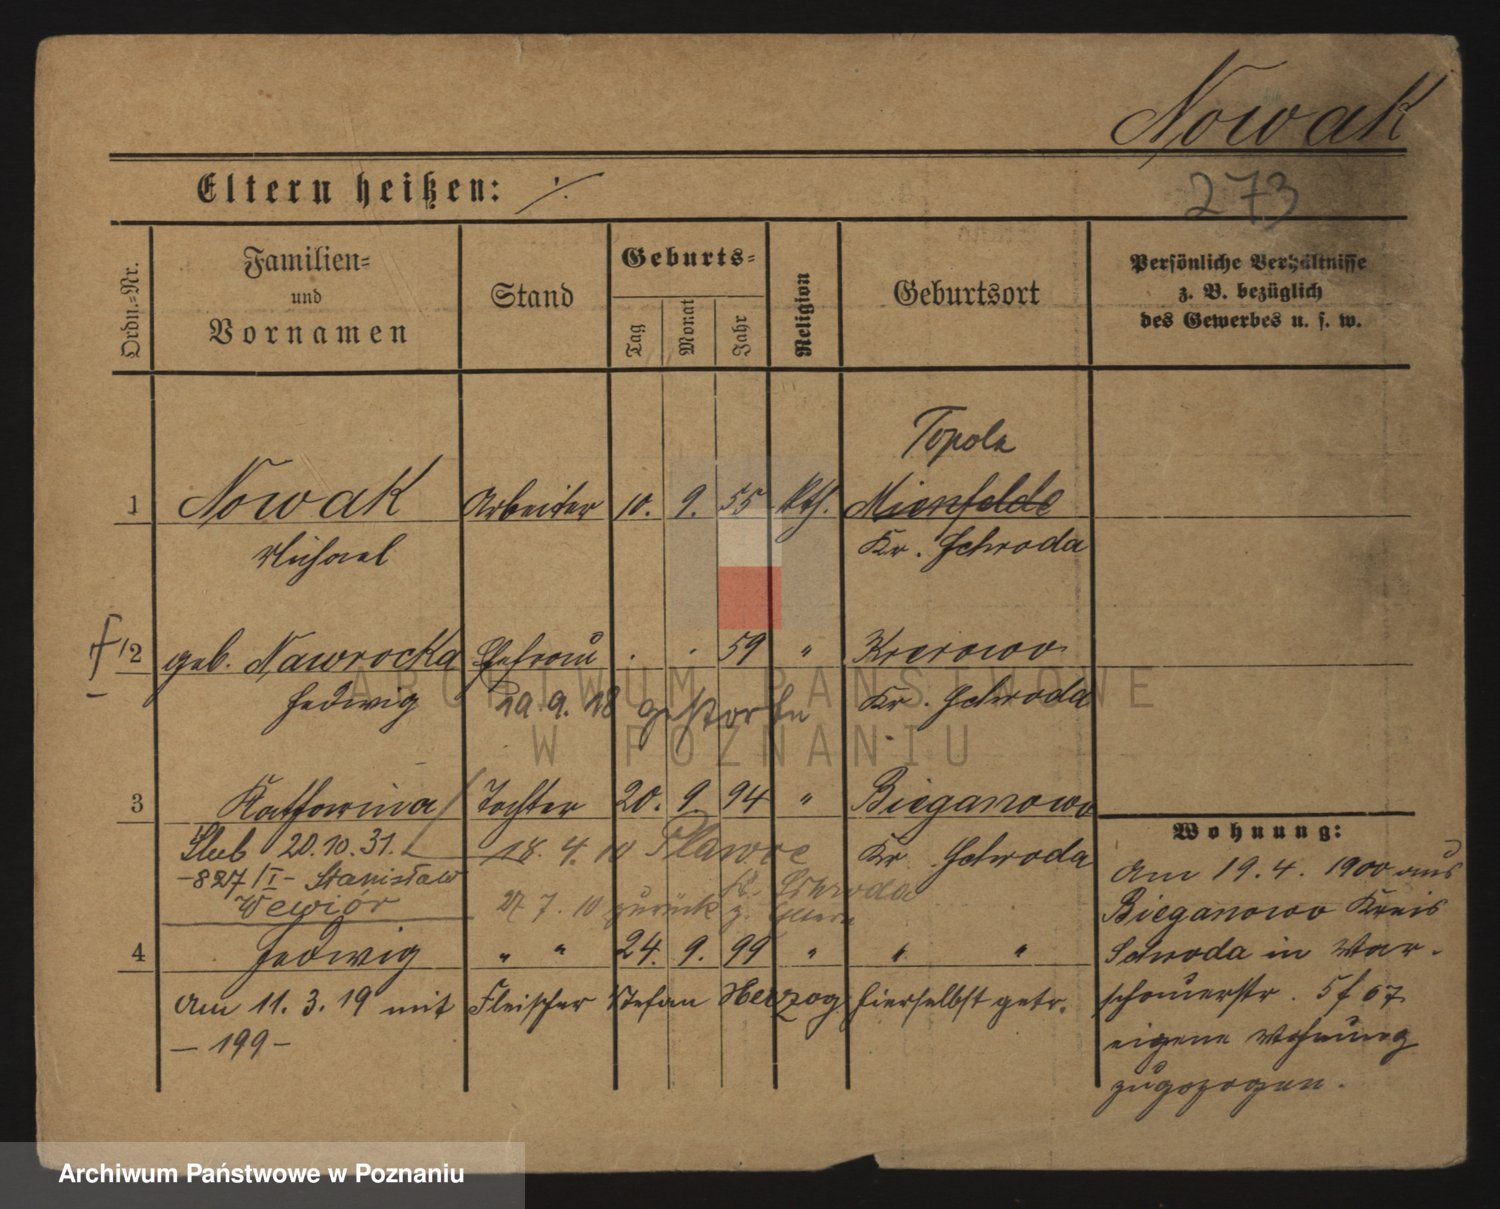 Nowak
273
Eltern heißen: ·/·
Ordn.-Nr.
Familien-
und
Vornamen
Stand
Geburts-
Tag
Monat
Jahr
Religion
Geburtsort
Persönliche Verhältnisse
z. B. bezüglich
des Gewerbes u. s. w.
Topola
1 Nowak Arbeiter 10. 9. 55 kth. Mienfelde
Michael Kr. Schroda
† 2 geb. Nawrocka Ehefrau . . 59 " Krerowo
Hedwig 29. 9. 18 gestorben Kr. Schroda
3 Katharina Tochter 20. 9. 94 " Bieganowo
Ślub 20.10.31. 18. 4. 10 Kr. Schroda
-827/I- Stanisław Kr. Schroda
Wewiór 27 7. 10 zurück z. Eltern
4 Hedwig " " 24. 9. 99 " " "
Am 11. 3. 19 mit Fleischer Stefan Herzog hierselbst getr.
- 199 -
Wohnung:
Am 19. 4. 1900 aus
Bieganowo Kreis
Schroda in War-
schauerstr. 5 f 67
eigene Wohnung
zugezogen.
ARCHIWUM PAŃSTWOWE
W POZNANIU
Archiwum Państwowe w Poznaniu